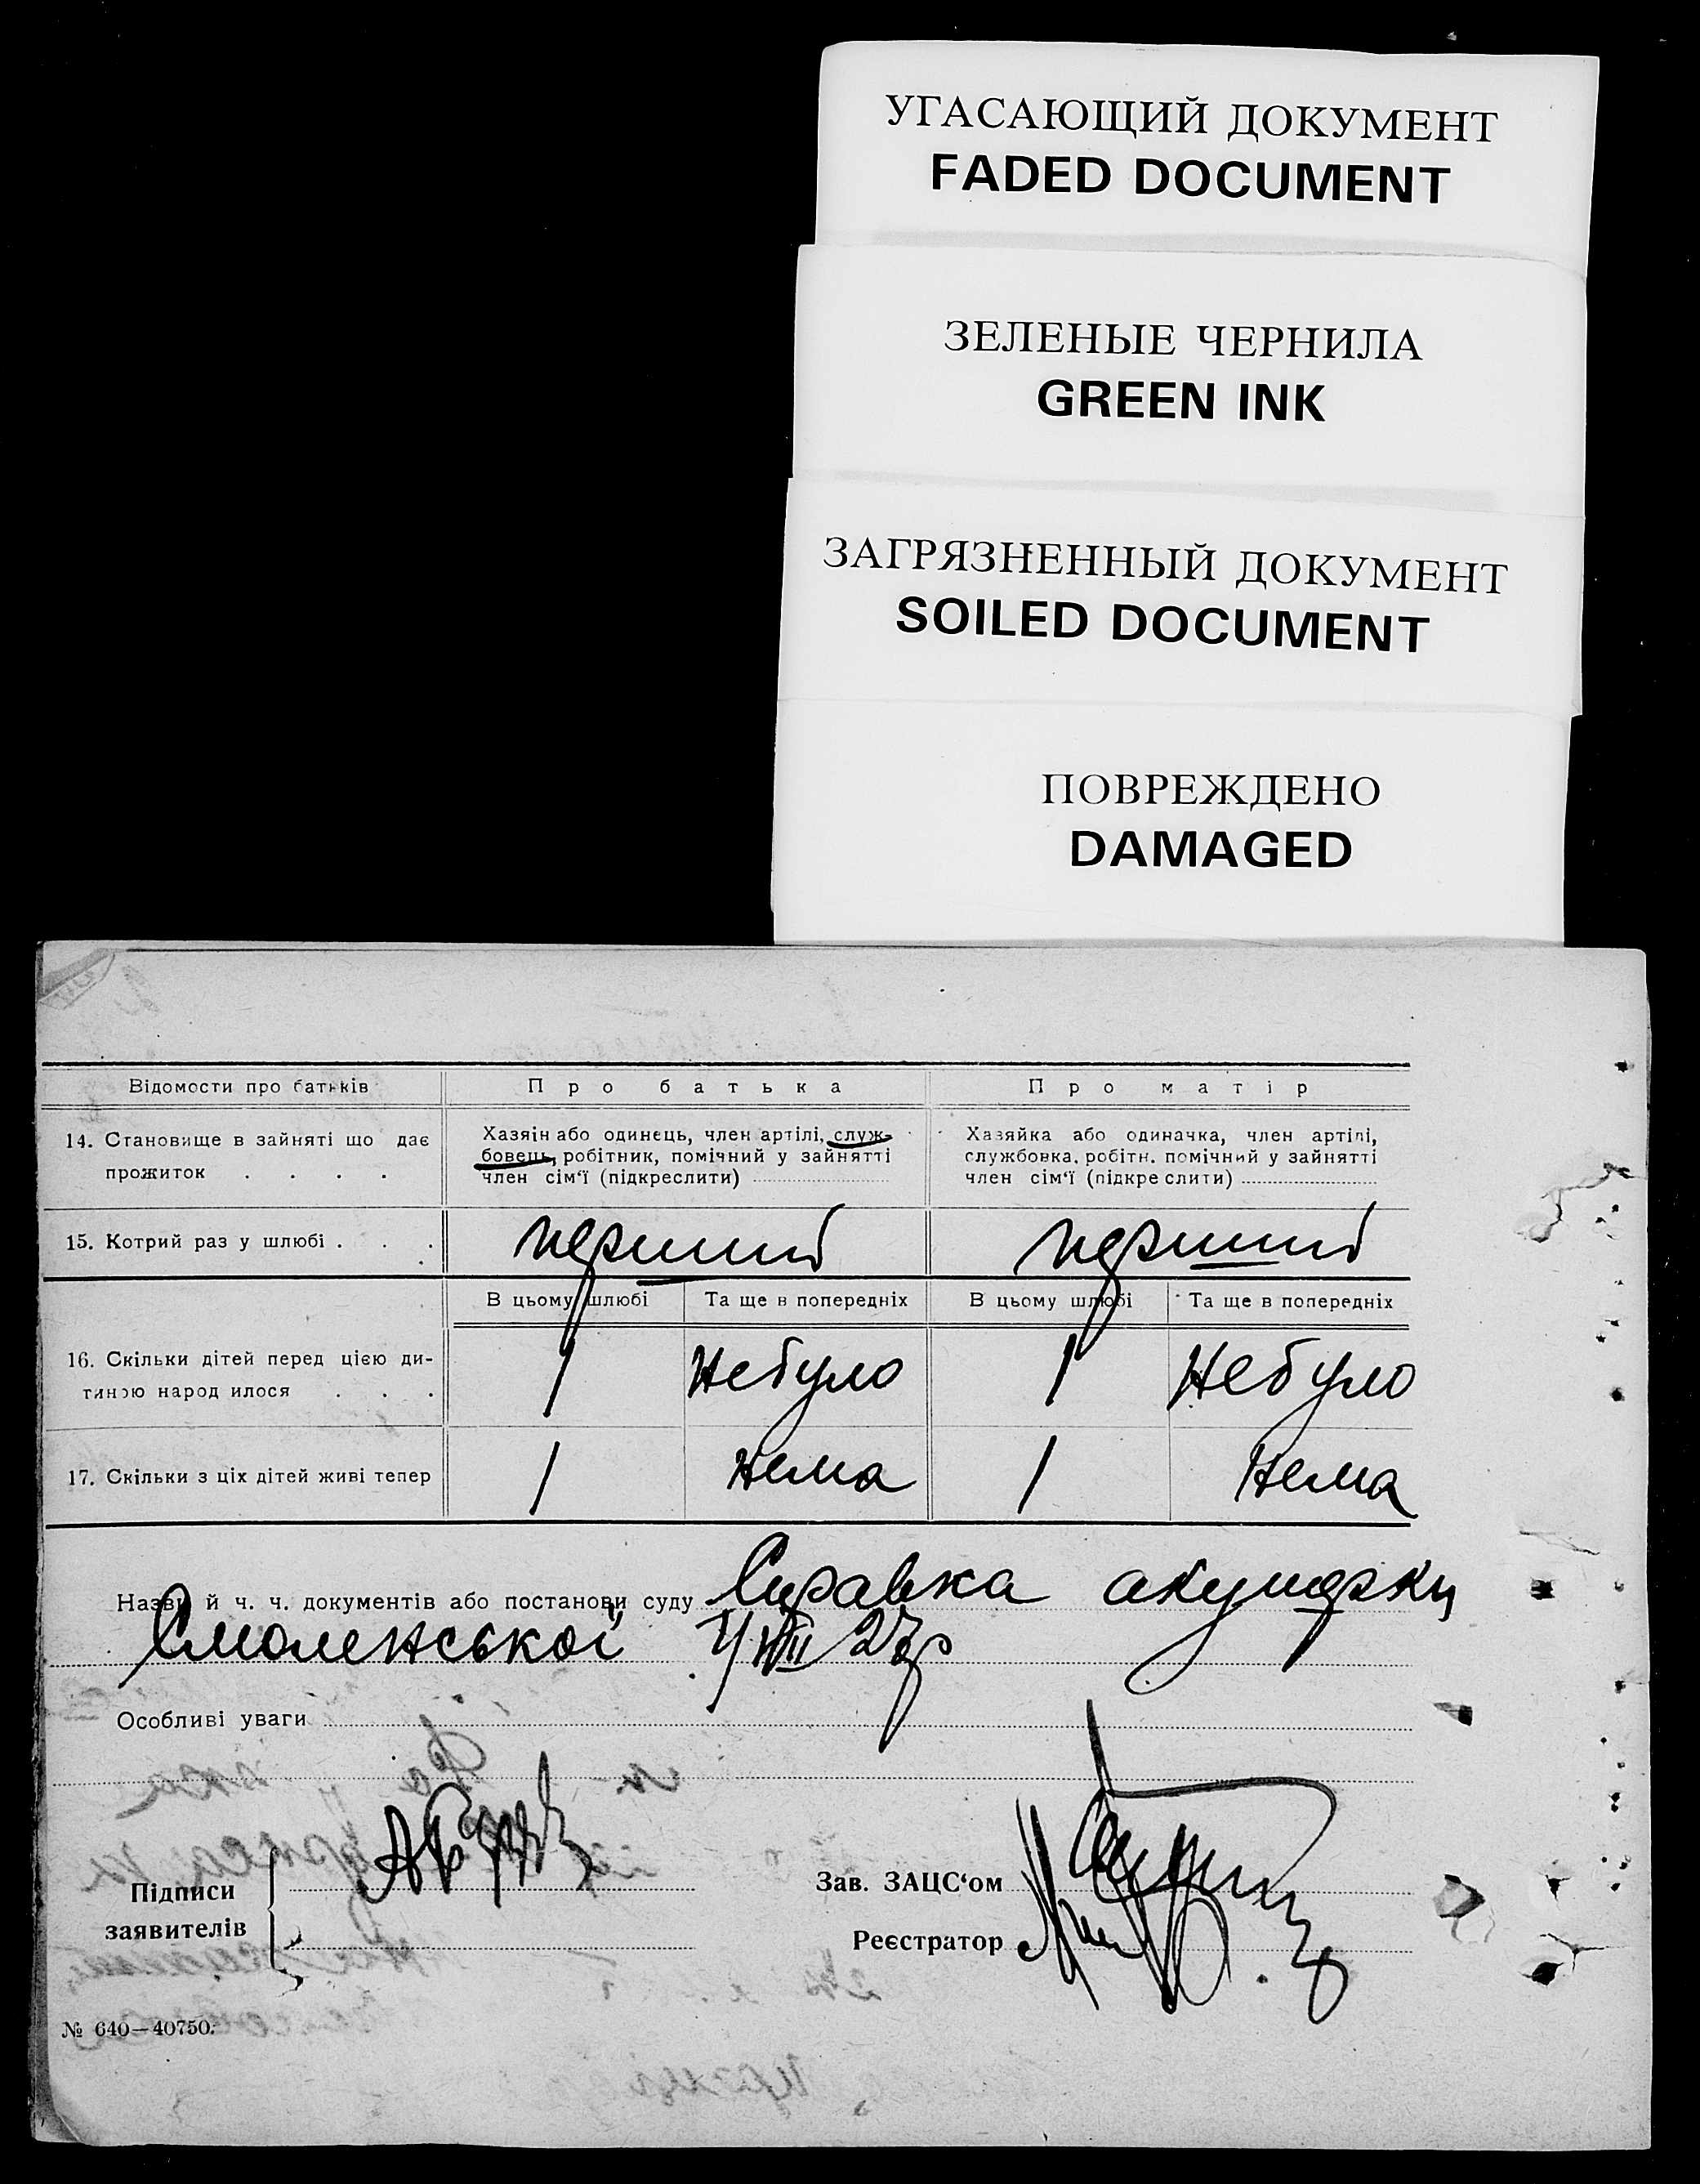 УГАСАЮЩИЙ ДОКУМЕНТ
FADED DOCUMENT
ЗЕЛЕНЫЕ ЧЕРНИЛА
GREEN INK
ЗАГРЯЗНЕННЫЙ ДОКУМЕНТ
SOILED DOCUMENT
ПОВРЕЖДЕНО
DAMAGED
Відомости про батьків Про батька Про матір
14. Становище в зайняті що дає прожиток . . . .
Хазяін або одинець, член артілі, служ-
бовець, робітник, помічний у зайнятті
член сім‘ї (підкреслити)
Хазяйка або одиначка, член артілі,
службовка, робітн. помічний у зайнятті
член сім‘ї (підкреслити)
15. Котрий раз у шлюбі . . . перший перший
В цьому шлюбі Та ще в попередніх В цьому шлюбі Та ще в попередніх
16. Скільки дітей перед цією ди-
тиною народилося . . . 1 Небуло 1 Небуло
17. Скільки з ціх дітей живі тепер 1 Нема 1 Нема
Назви й ч. ч. документів або постанови суду Справка акушерки
Смоленської VIII 27 р
Особливі уваги
Підписи
заявителів
Зав. ЗАЦС‘ом
Реєстратор
№ 640—40750.